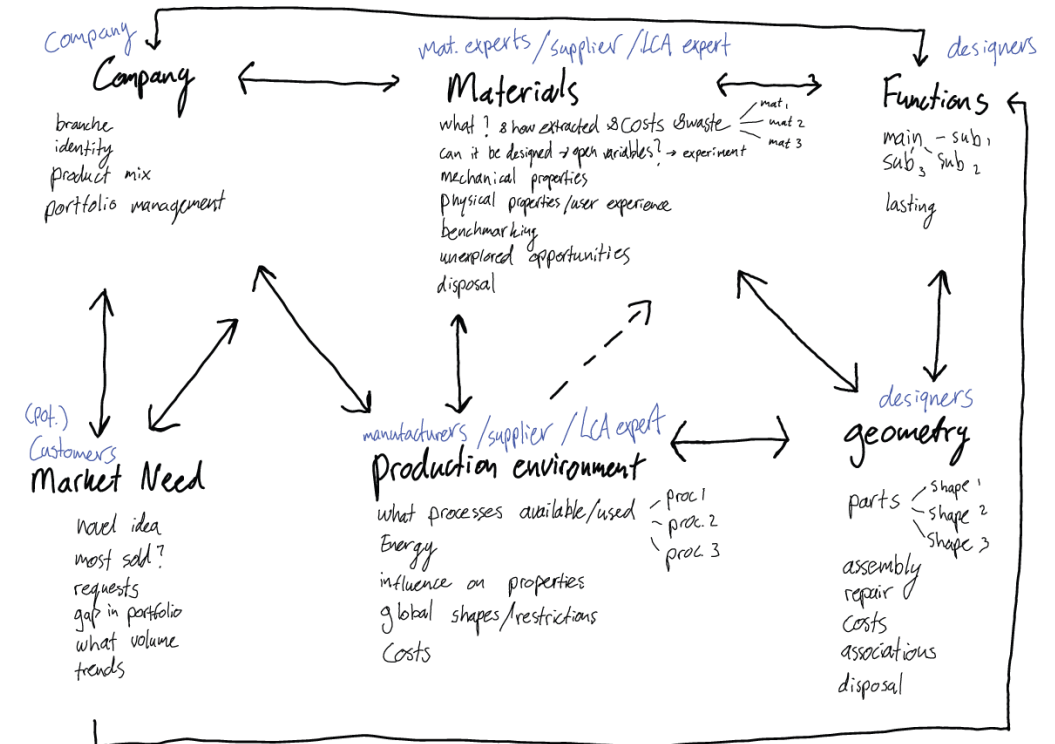 Company
Company
branche
identity
product mix
portfolio management
mat. experts / supplier / LCA expert
Materials
what? & how extracted & costs & waste
mat 1
mat 2
mat 3
can it be designed → open variables? → experiment
mechanical properties
physical properties/user experience
benchmarking
unexplored opportunities
disposal
designers
Functions
main - sub 1
sub 3 sub 2
lasting
(pot.)
Customers
Market Need
novel idea
most sold?
requests
gap in portfolio
what volume
trends
manufacturers / supplier / LCA expert
production environment
what processes available/used
proc 1
proc. 2
proc. 3
Energy
influence on properties
global shapes/restrictions
Costs
designers
geometry
parts
shape 1
shape 2
shape 3
assembly
repair
costs
associations
disposal